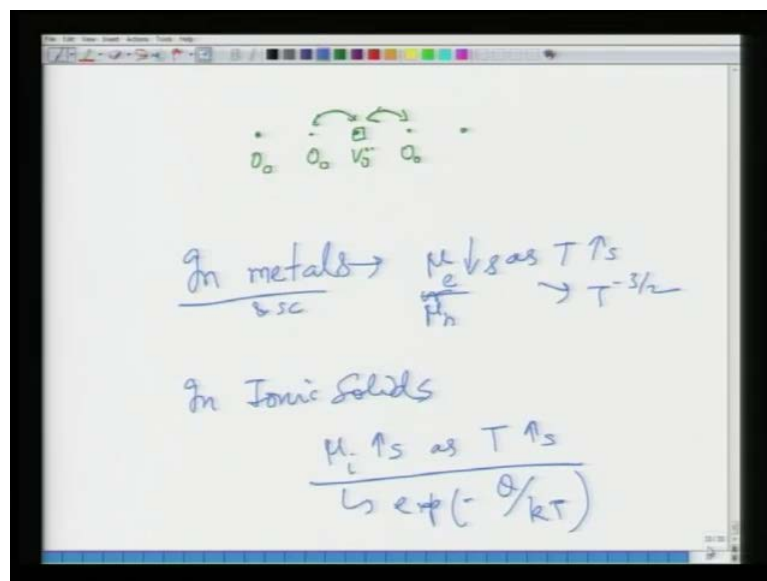 File Edit View Insert Actions Tools Help
O₀ O₀ V₀·· O₀
In metals → μₑ ↓s as T ↑s
& SC μₕ → T^-3/2
In Ionic Solids
μᵢ ↑s as T ↑s
↳ exp(- Q/kT)